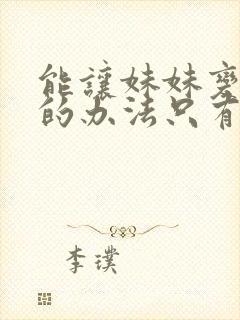 能讓妹妹
的办法只有
李璞